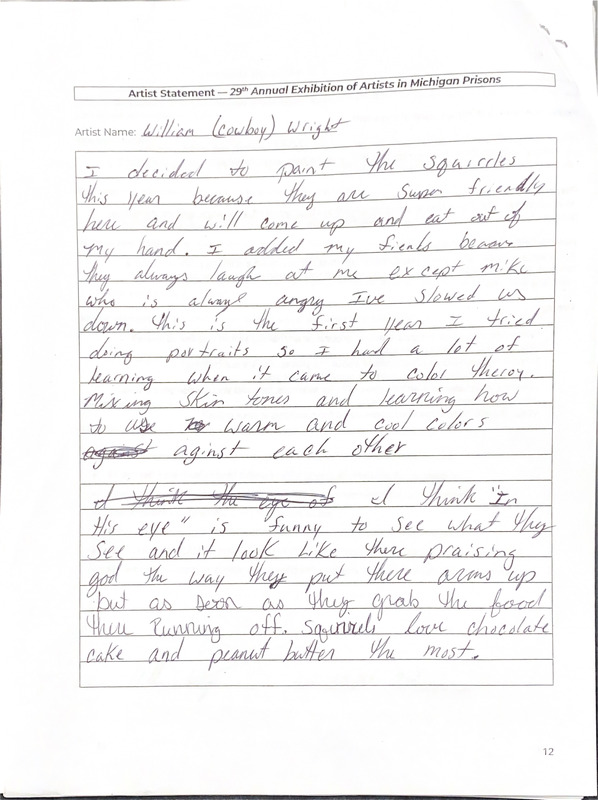 Artist Statement — 29th Annual Exhibition of Artists in Michigan Prisons
Artist Name: William (Cowboy) Wright
I decided to paint the squirrles
this year because they are super friendly
here and will come up and eat out of
my hand. I added my fienls becaus
they always laugh at me except mike
who is always angry Ive slowed us
down. This is the first year I tried
doing portraits so I had a lot of
learning when it came to color theroy.
Mixing skin tones and learning how
to use warm and cool colors
against aginst each other
I think the eye of I think "In
His eye" is funny to see what they
see and it look like there praising
god the way they put there arms up
but as soon as they grab the food
there running off. Squirrels love chocolate
cake and peanut butter the most.
12